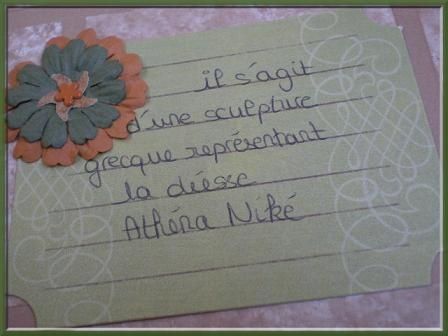 il s'agit
d'une sculpture
grecque représentant
la déesse
Athéna Niké